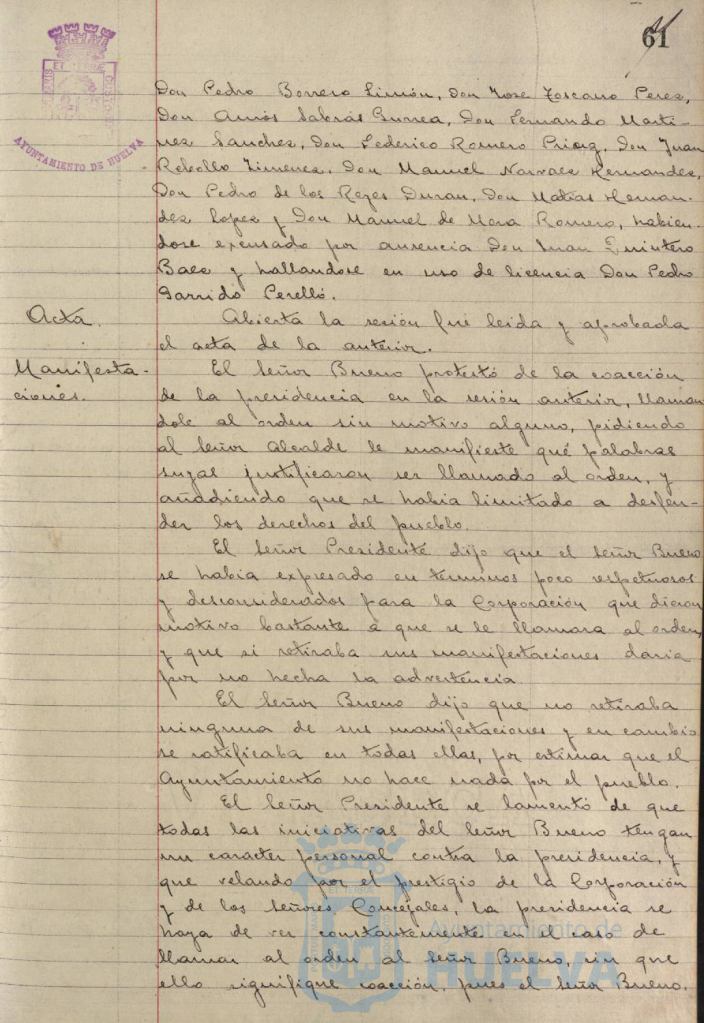 61
AYUNTAMIENTO DE HUELVA
Don Pedro Borrero Limón, Don Jose Toscano Perez,
Don Amós Sabrás Gurrea, Don Fernando Marti-
nez Sanchez, Don Federico Romero Don Juan
Rebollo Jimenez, Don Manuel Narvaez Hernandez,
Don Pedro de los Reyes Duran, Don Matias Hernan-
dez Lopez y Don Manuel de Mora Romero, habien-
dose excusado por ausencia Don Juan Quintero
Baez y hallandose en uso de licencia Don Pedro
Garrido Perelló.
Acta.
Abierta la sesión fué leida y aprobada
el acta de la anterior.
Manifesta-
ciones.
El Señor Bueno protestó de la coacción
de la presidencia en la sesión anterior, llaman
dole al orden sin motivo alguno, pidiendo
al Señor Alcalde le manifieste qué palabras
suyas justificaron ser llamado al orden, y
añadiendo que se habia limitado a defen-
der los derechos del pueblo.
El Señor Presidente dijo que el Señor Bueno
se habia expresado en terminos poco respetuosos
y desconsiderados para la Corporación que dieron
motivo bastante a que se le llamara al orden,
y que si retiraba sus manifestaciones daria
por no hecha la advertencia.
El Señor Bueno dijo que no retiraba
ninguna de sus manifestaciones y en cambio
se ratificaba en todas ellas, por estimar que el
Ayuntamiento no hace nada por el pueblo.
El Señor Presidente se lamentó de que
todas las iniciativas del Señor Bueno tengan
un caracter personal contra la presidencia, y
que velando por el prestigio de la Corporación
y de los Señores Concejales, la presidencia se
haya de ver constantemente en el caso de
llamar al orden al Señor Bueno, sin que
ello signifique coacción, pues el Señor Bueno,
Ayuntamiento de
HUELVA